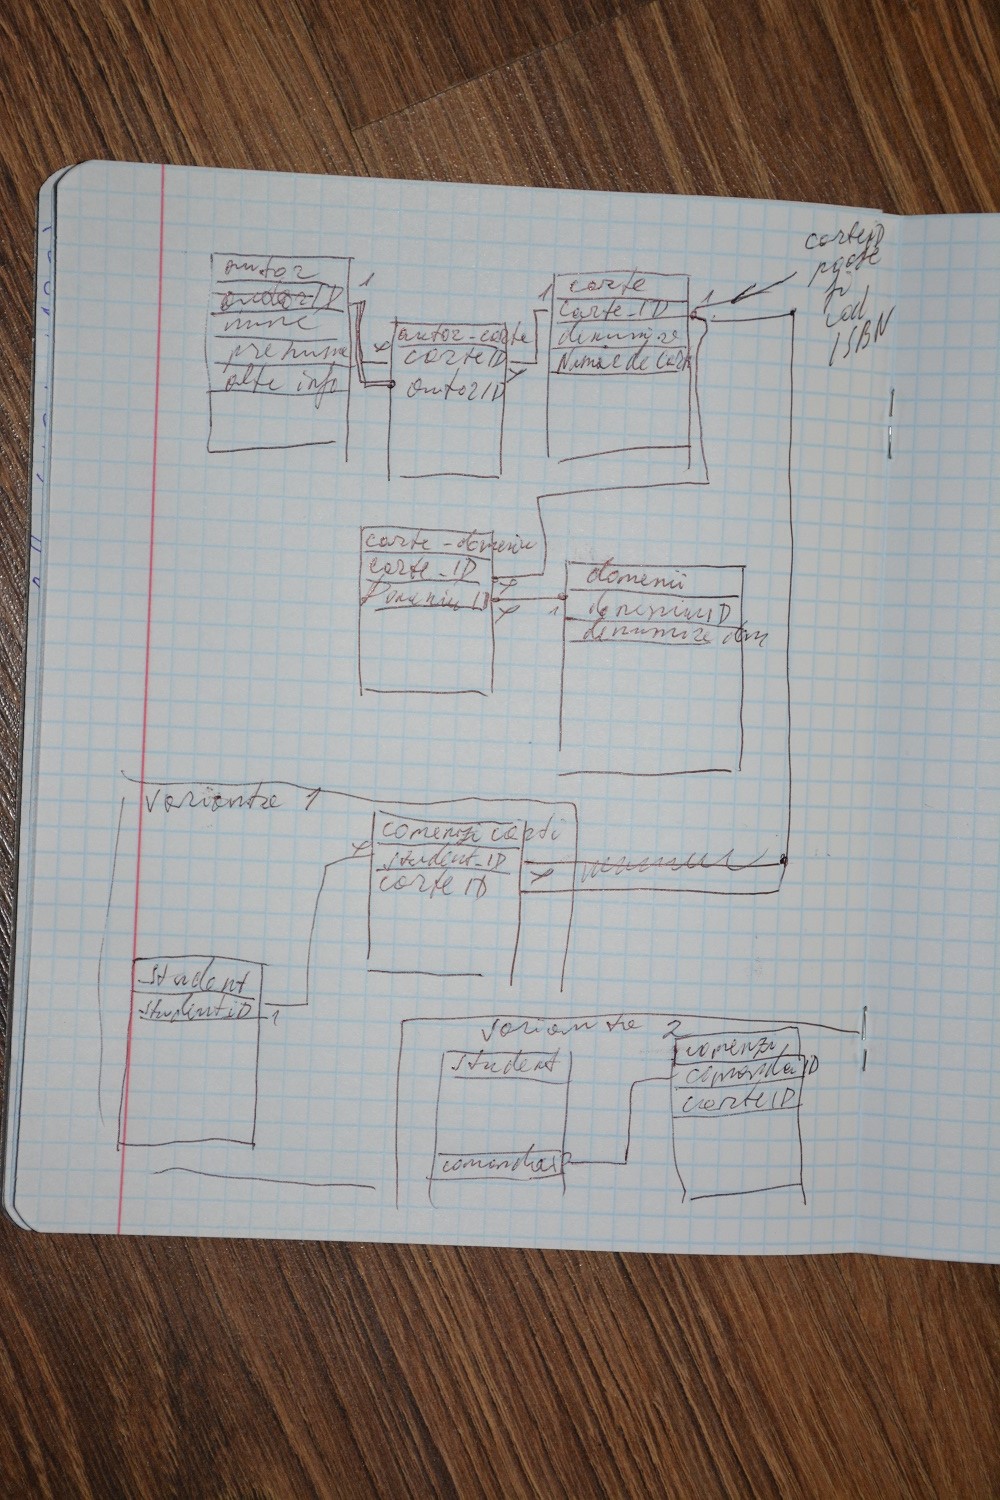 autor
autorID
nume
prenume
alte info
1
*
autor-carte
carteID
autorID
*
1
carte
carte_ID
denumire
Numar de carti
1
carteID
poate
fi
cod
ISBN
carte-domeniu
carte_ID
Domeniu ID
*
*
1
domenii
domeniuID
denumire dom
varianta 1
comenzi carti
student_ID
carte ID
*
*
student
studentID
1
varianta 2
student
comandaID
comenzi
comandaID
carteID